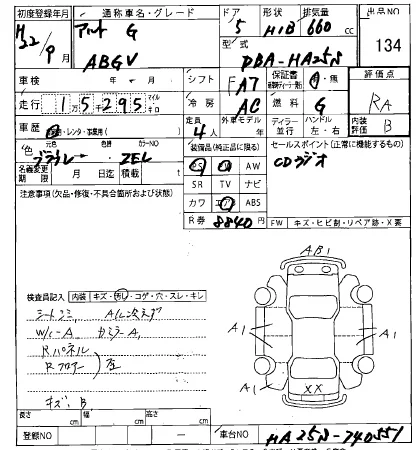 初度登録年月 通称車名・グレード ドア 形状 排気量 出品NO
H22/9 アルト G 5 H/B 660 cc 134
ABGV 型式 DBA-HA25S
車検 年 月 シフト FA7 保証書 有・無 評価点
走行 15千295 マイル キロ 冷房 AC 燃料 G RA
車歴 自・レンタ・事業用( ) 定員 4人 外車モデル 年 ディーラー 並行 ハンドル 左・右 内装評価 B
色 元色 色替 カラーNO 装備品(純正品に限る) セールスポイント(正常に機能するもの)
ZEL PS PW AW CDラジオ
名義変更期限 月 日迄 積載 t SR TV ナビ
注意事項(欠品・修復・不具合箇所および状態) カワ エアB ABS
R券 8840円 FW キズ・ヒビ割・リペア跡・X要
AB1
検査員記入 内装 キズ・汚レ・コゲ・穴・スレ・キレ
シートシミ
W/C-A A1 A1
Rパネル
Rフロアー 左
キズ B A1 XX A1
長さ cm 幅 cm 高さ cm
登録NO 車台NO HA25S-740551